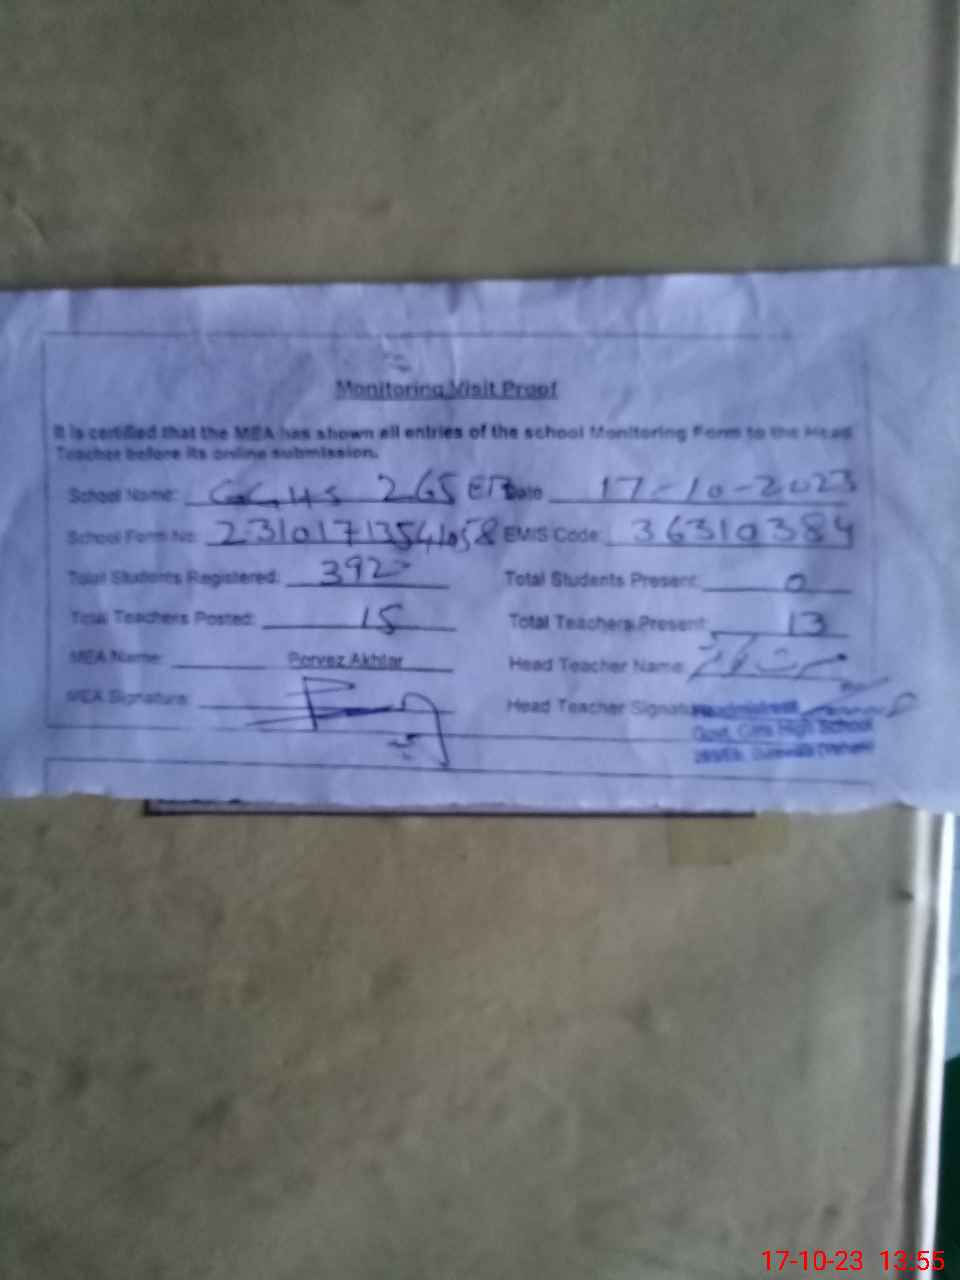 Monitoring Visit Proof
It is certified that the MEA has shown all entries of the school Monitoring Form to the Head
Teacher before its online submission.
School Name: GGHS 265 EB Date 17-10-2023
School Form No: 231017135441058 EMIS Code: 36310384
Total Students Registered: 392 Total Students Present: 0
Total Teachers Posted: 15 Total Teachers Present: 13
MEA Name: Pervez Akhtar Head Teacher Name:
MEA Signature: Head Teacher Signature
Headmistress
Govt. Girls High School
17-10-23 13:55